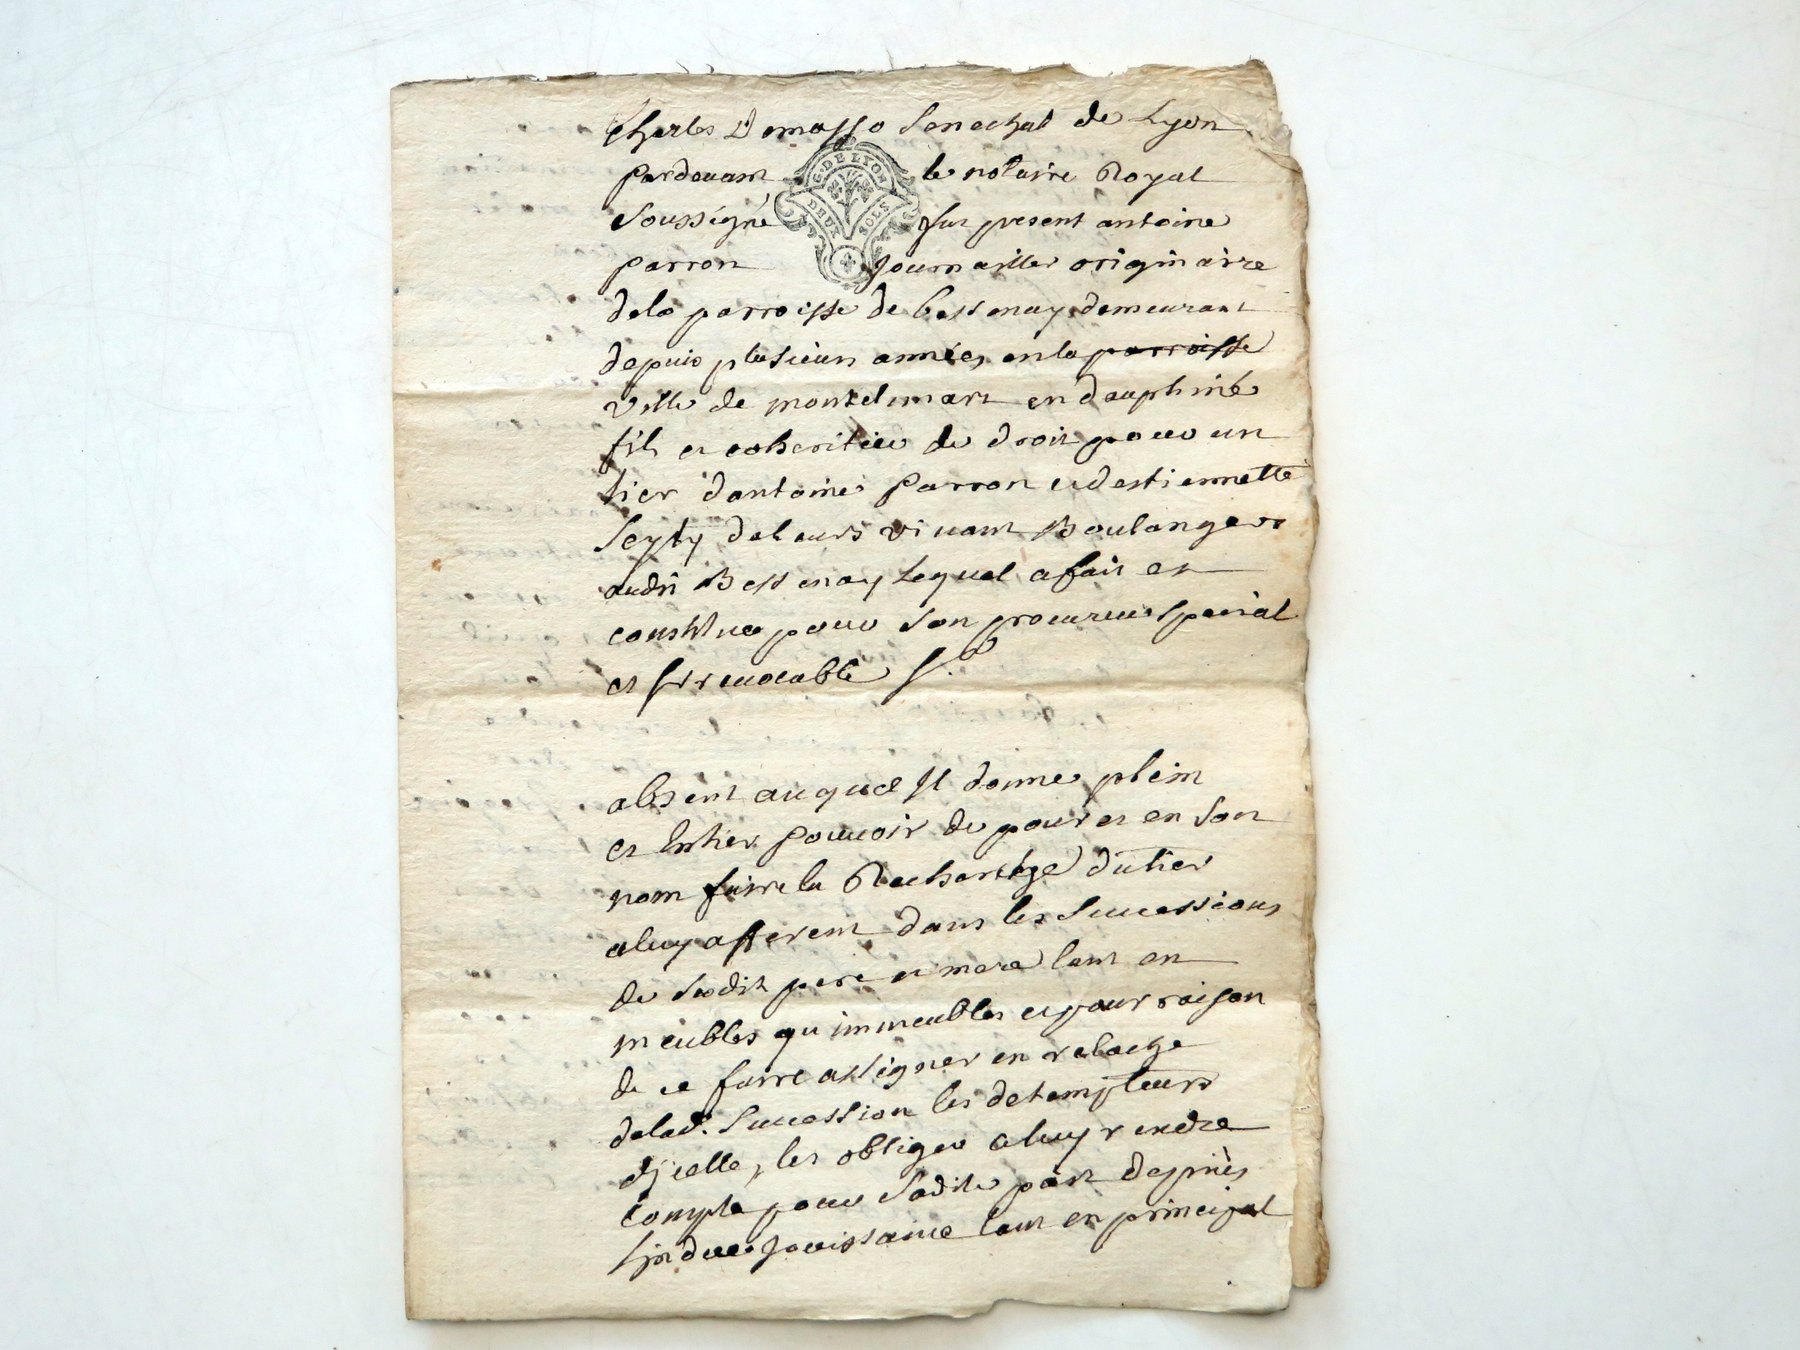 Charles Demasso Senechal de Lyon
pardevant le notaire Royal
G. DE LYON
DEUX SOLS
Soussigné fut present antoine
parron Journallier originaire
dela parroisse de bessenay demeurant
depuis plusieurs années en la parroisse
ville de montelimart en dauphiné
fils et coheritier de droit pour un
tier dantoine parron et destiennette
deleurs vivant Boulangers
audit Bessenay Lequel a fait et
constitue pour son procureur special
et Irrevocable
absent auquel Il donne plein
et Entier pouvoir de pour et en son
nom faire la Recherche dutier
aluy afferent dans les Successions
de sesdit pere et mere tant en
meubles qu immeubles et pour raison
de ce faire assigner en relache
delad. Succession les detempteurs
dicelle, les obliger aluy rendre
compte pour sadite part despuis
Indue Jouissance tant en principal